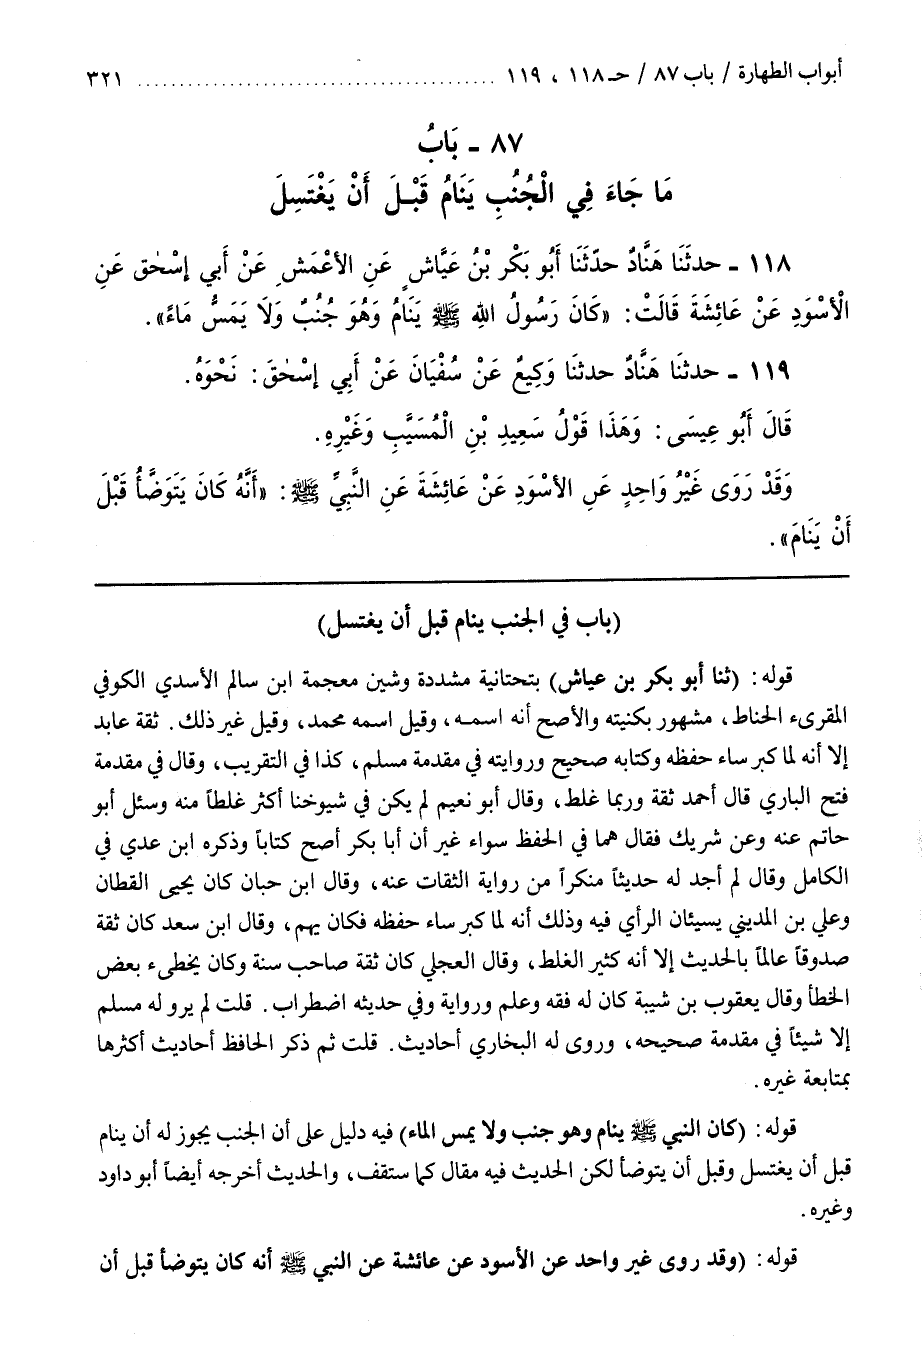 أبواب الطهارة / باب ٨٧ / حـ ١١٨ ، ١١٩ ............................................ ٣٢١
٨٧ - بَابُ
مَا جَاءَ فِي الْجُنُبِ يَنَامُ قَبْلَ أَنْ يَغْتَسِلَ
١١٨ - حدثَنَا هَنَّادٌ حدّثَنَا أَبُو بَكْرِ بْنُ عَيَّاشٍ عَنِ الأعْمَشِ عَنْ أَبي إسْحٰق عَنِ
الْأسْوَدِ عَنْ عَائِشَةَ قَالَتْ: «كَانَ رَسُولُ اللهِ ﷺ يَنَامُ وَهُوَ جُنُبٌ وَلَا يَمَسُّ مَاءً».
١١٩ - حدثنَا هَنَّادٌ حدثنَا وَكِيعٌ عَنْ سُفْيَانَ عَنْ أَبِي إسْحٰقَ: نَحْوَهُ.
قَالَ أَبُو عِيسَى: وَهَذَا قَوْلُ سَعِيدِ بْنِ الْمُسَيَّبِ وَغَيْرِهِ.
وَقَدْ رَوَى غَيْرُ وَاحِدٍ عَنِ الأسْوَدِ عَنْ عَائِشَةَ عَنِ النَّبِيِّ ﷺ: «أَنَّهُ كَانَ يَتَوَضَّأُ قَبْلَ
أَنْ يَنَامَ».
(باب في الجنب ينام قبل أن يغتسل)
قوله: (ثنا أبو بكر بن عياش) بتحتانية مشددة وشين معجمة ابن سالم الأسدي الكوفي
المقرىء الحناط، مشهور بكنيته والأصح أنه اسمه، وقيل اسمه محمد، وقيل غير ذلك. ثقة عابد
إلا أنه لما كبر ساء حفظه وكتابه صحيح وروايته في مقدمة مسلم، كذا في التقريب، وقال في مقدمة
فتح الباري قال أحمد ثقة وربما غلط، وقال أبو نعيم لم يكن في شيوخنا أكثر غلطاً منه وسئل أبو
حاتم عنه وعن شريك فقال هما في الحفظ سواء غير أن أبا بكر أصح كتاباً وذكره ابن عدي في
الكامل وقال لم أجد له حديثاً منكراً من رواية الثقات عنه، وقال ابن حبان كان يحيى القطان
وعلي بن المديني يسيئان الرأي فيه وذلك أنه لما كبر ساء حفظه فكان يهم، وقال ابن سعد كان ثقة
صدوقاً عالماً بالحديث إلا أنه كثير الغلط، وقال العجلي كان ثقة صاحب سنة وكان يخطىء بعض
الخطأ وقال يعقوب بن شيبة كان له فقه وعلم ورواية وفي حديثه اضطراب. قلت لم يرو له مسلم
إلا شيئاً في مقدمة صحيحه، وروى له البخاري أحاديث. قلت ثم ذكر الحافظ أحاديث أكثرها
بمتابعة غيره.
قوله: (كان النبي ﷺ ينام وهو جنب ولا يمس الماء) فيه دليل على أن الجنب يجوز له أن ينام
قبل أن يغتسل وقبل أن يتوضأ لكن الحديث فيه مقال كما ستقف، والحديث أخرجه أيضاً أبو داود
وغيره.
قوله: (وقد روى غير واحد عن الأسود عن عائشة عن النبي ﷺ أنه كان يتوضأ قبل أن